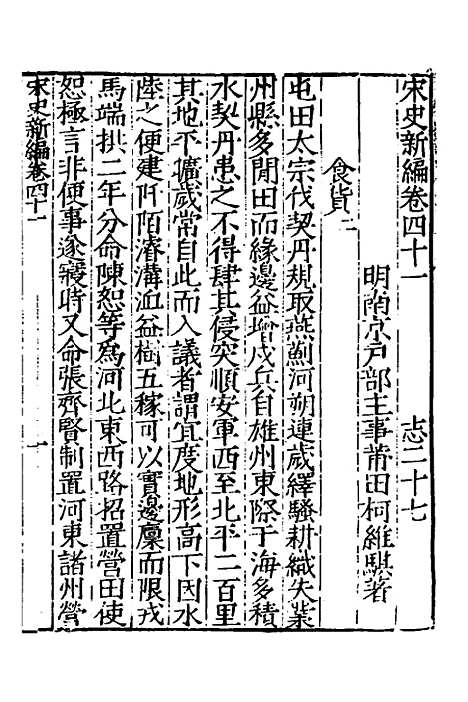 宋史新編卷四十一　志二十七
明南京戶部主事莆田柯維騏著
食貨二
屯田太宗伐契丹規取燕薊河朔連歲繹騷耕織失業
州縣多閒田而緣邊益增戍兵自雄州東際于海多積
水契丹患之不得肆其侵突順安軍西至北平二百里
其地平曠歲常自此而入議者謂宜度地形高下因水
陸之便建阡陌濬溝洫益樹五稼可以實邊廩而限戎
馬端拱二年分命陳恕等為河北東西路招置營田使
恕極言非便事遂寢時又命張齊賢制置河東諸州營
宋史新編卷四十一　一